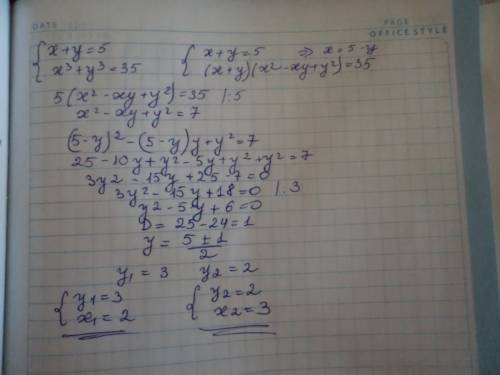 DATE PAGE
OFFICE STYLE
{ x+y=5 { x+y=5 ⇒ x=5-y
x³+y³=35 (x+y)(x²-xy+y²)=35
5(x²-xy+y²)=35 |:5
x²-xy+y²=7
(5-y)²-(5-y)y+y²=7
25-10y+y²-5y+y²+y²=7
3y2-15y+25-7=0
3y²-15y+18=0 |:3
y2-5y+6=0
D=25-24=1
y=5±1/2
y₁=3 y₂=2
{ y1=3 { y2=2
x₁=2 x2=3